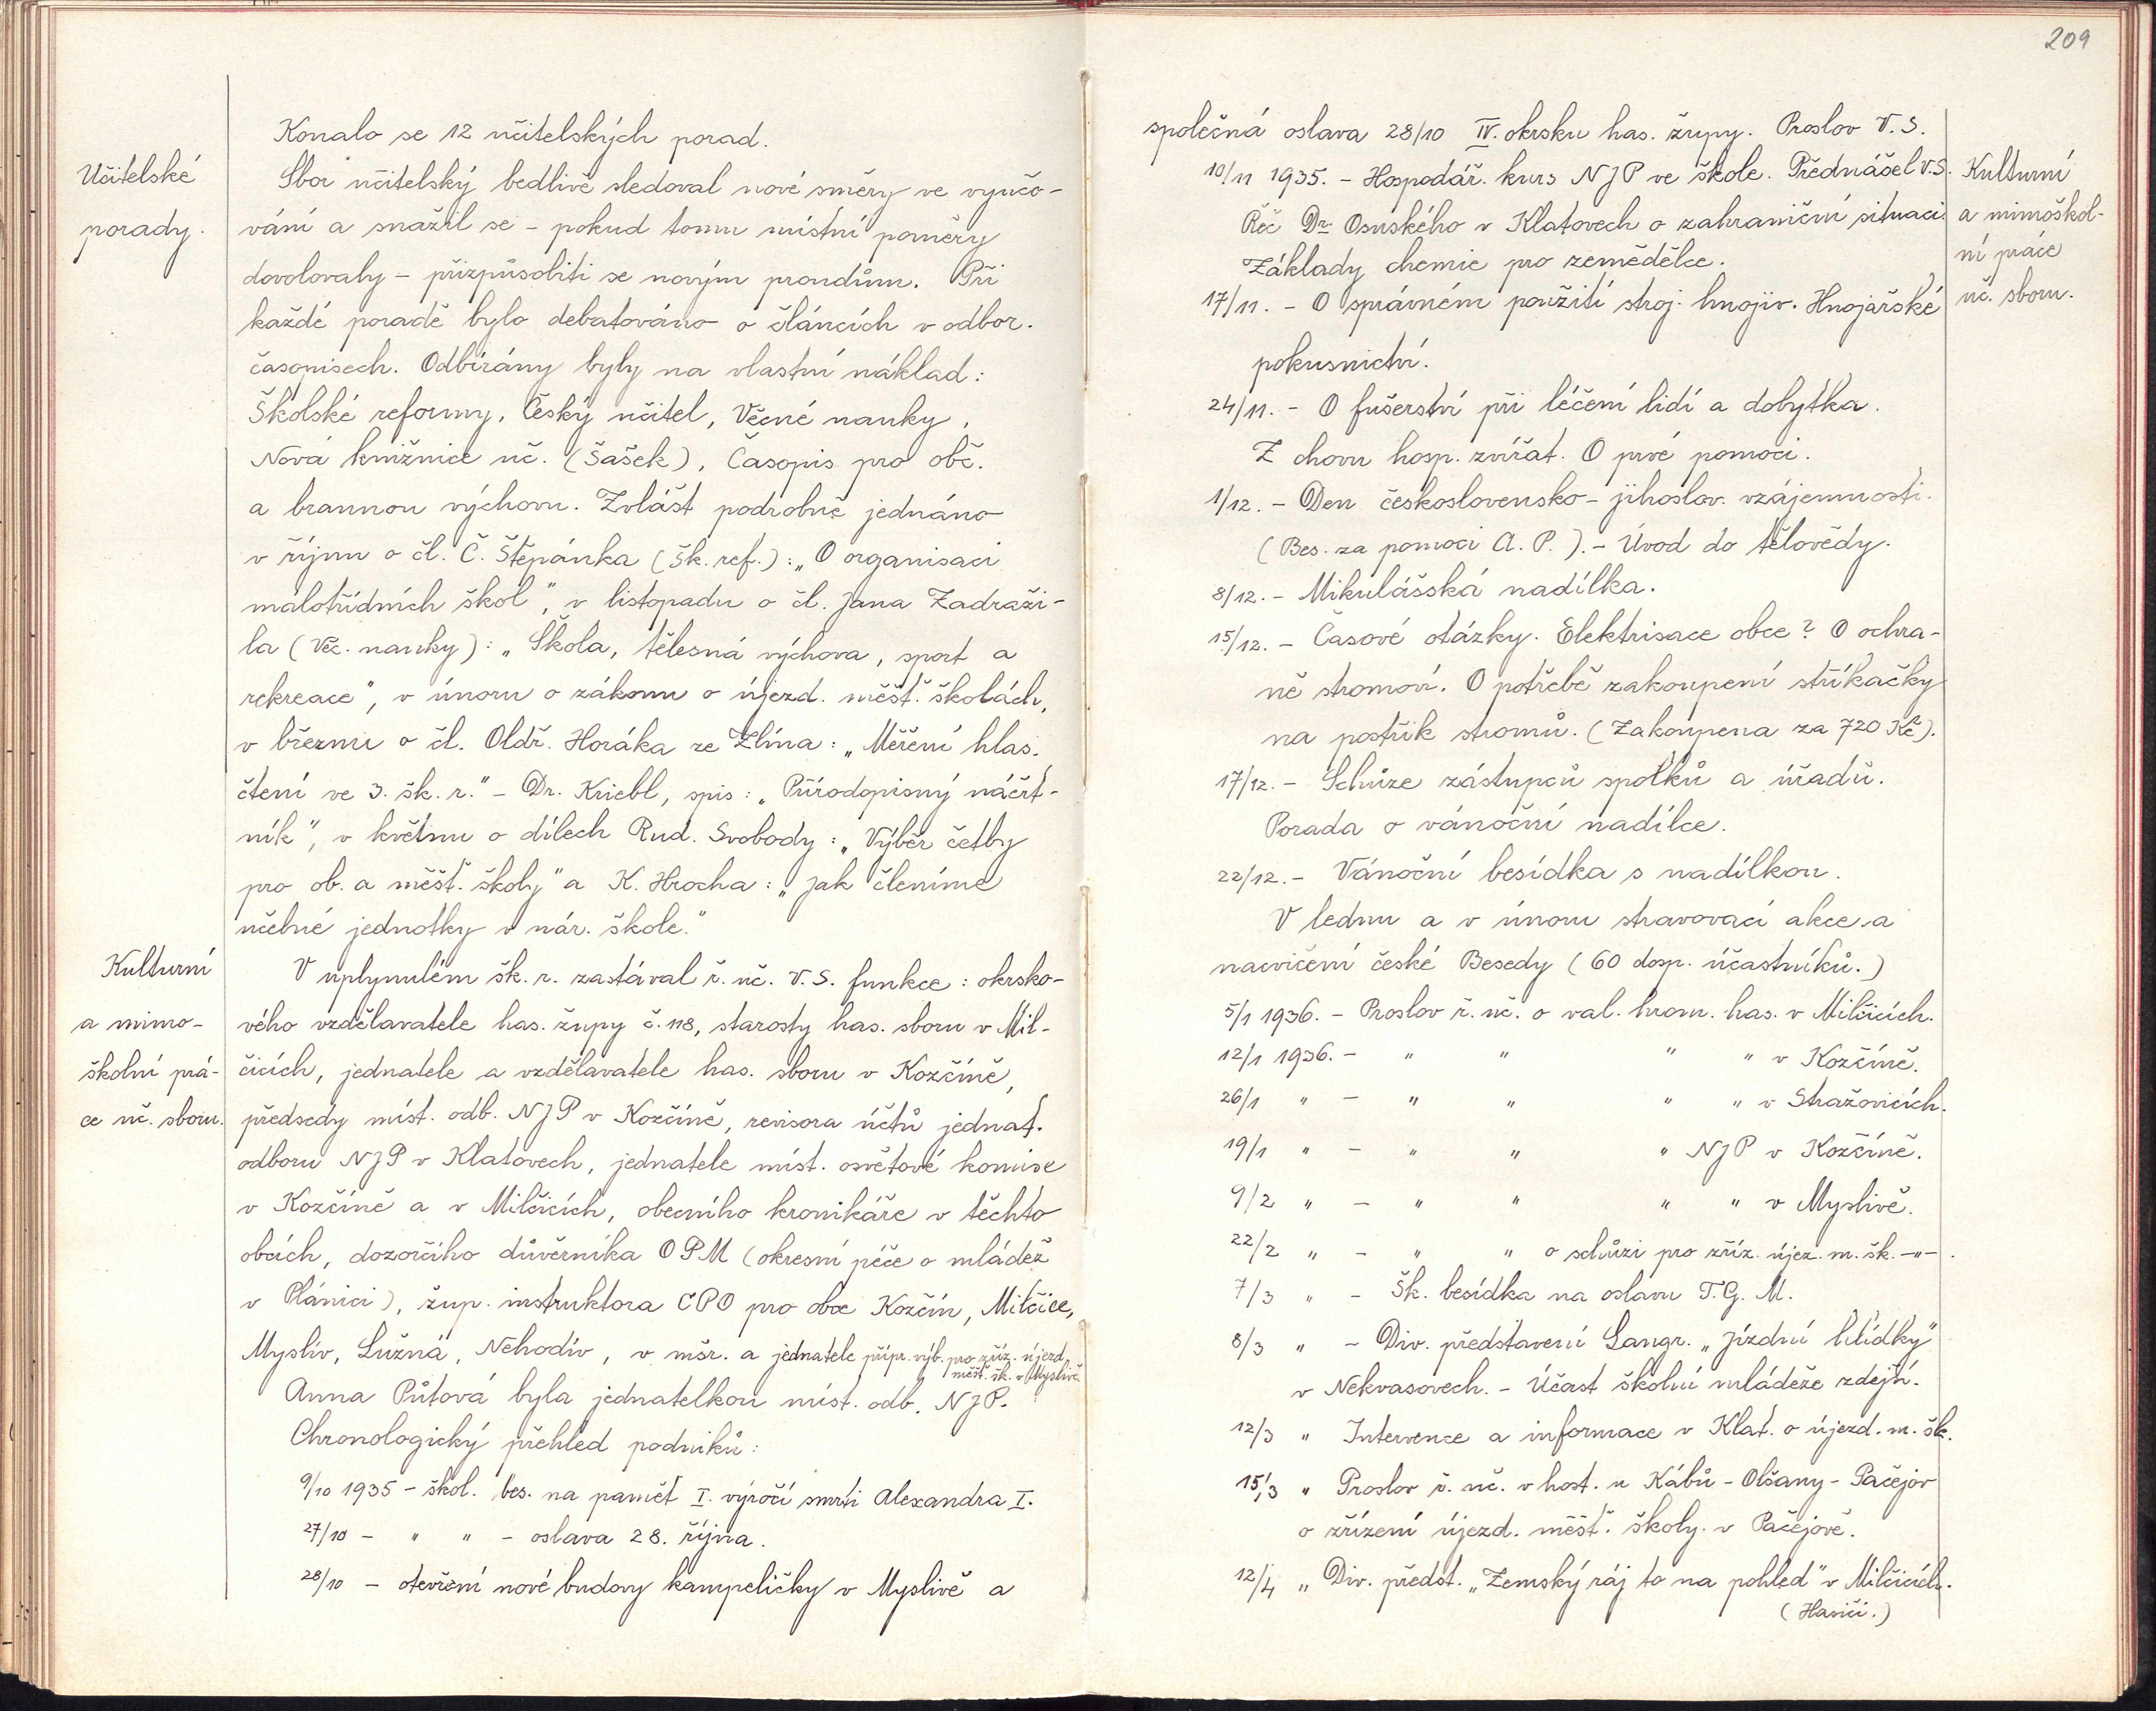 Učitelské
porady.
Konalo se 12 učitelských porad.
Sbor učitelský bedlivě sledoval nové směry ve vyučo-
vání a snažil se – pokud tomu místní poměry
dovolovaly – přizpůsobiti se novým proudům. Při
každé poradě bylo debatováno o článcích v odbor.
časopisech. Odbírány byly na vlastní náklad:
Školské reformy, Český učitel, Věcné nauky,
Nová knižnice uč. (Šašek), Časopis pro obč.
a brannou výchovu. Zvlášt podrobně jednáno
v říjnu o čl. Č. Štěpánka (Šk. ref.): „O organisaci
málotřídních škol", v listopadu o čl. Jana Zadraži-
la (Věc. nauky): „Škola, tělesná výchova, sport a
rekreace", v únoru o zákonu o újezd. měšť. školách,
v březnu o čl. Oldř. Horáka ze Zlína: „Měření hlas.
čtení ve 3. šk. r." – Dr. Kriebl, spis: „Přírodopisný náčrt-
ník", v květnu o dílech Rud. Svobody: „Výběr četby
pro ob. a měšť. školy" a K. Hrocha: „Jak členíme
učebné jednotky v nár. škole."
Kulturní
a mimo-
školní prá-
ce uč. sboru.
V uplynulém šk. r. zastával ř. uč. V. S. funkce: okrsko-
vého vzdělavatele has. župy č. 118, starosty has. sboru v Mil-
čicích, jednatele a vzdělavatele has. sboru v Kozčíně,
předsedy míst. odb. NJP v Kozčíně, revisora účtů jednat.
odboru NJP v Klatovech, jednatele míst. osvětové komise
v Kozčíně a v Milčicích, obecního kronikáře v těchto
obcích, dozorčího důvěrníka OPM (okresní péče o mládež
v Plánici), žup. instruktora CPO pro obce Kozčín, Milčice,
Myslív, Lužná, Nehodív, v mšr. a jednatele přípr. výb. pro zříz. újezd.
měšť. šk. v Myslívě.
Anna Půtová byla jednatelkou míst. odb. NJP.
Chronologický přehled podniků:
9/10 1935 – škol. bes. na paměť I. výročí smrti Alexandra I.
27/10 – " " – oslava 28. října.
28/10 – otevření nové budovy kampeličky v Myslívě a
209
společná oslava 28/10 IV. okrsku has. župy. Proslov V. S.
10/11 1935. – Hospodář. kurs NJP ve škole. Přednášel V.S.
Řeč Dr. Osuského v Klatovech o zahraniční situaci.
Základy chemie pro zemědělce.
17/11. – O správném použití stroj. hnojiv. Hnojařské
pokusnictví.
24/11. – O fušerství při léčení lidí a dobytka.
Z chovu hosp. zvířat. O prvé pomoci.
1/12. – Den československo-jihoslov. vzájemnosti.
(Bes. za pomoci A. P.). – Úvod do tělovědy.
8/12. – Mikulášská nadílka.
15/12. – Časové otázky. Elektrisace obce? O ochra-
ně stromoví. O potřebě zakoupení stříkačky
na postřik stromů. (Zakoupena za 720 Kč).
17/12. – Schůze zástupců spolků a úřadů.
Porada o vánoční nadílce.
22/12. – Vánoční besídka s nadílkou.
V lednu a v únoru stravovací akce a
nacvičení české Besedy (60 dosp. účastníků.)
5/1 1936. – Proslov ř. uč. o val. hrom. has. v Milčicích.
12/1 1936. – " " " " v Kozčíně.
26/1 " – " " " " v Stražovicích.
19/1 " – " " " NJP v Kozčíně.
9/2 " – " " " " v Myslívě.
22/2 " – " " o schůzi pro zříz. újez. m. šk. –"– .
7/3 " – Šk. besídka na oslavu T. G. M.
8/3 " – Div. představení Langr. „Jízdní hlídky"
v Nekvasovech. – Účast školní mládeže zdejší.
12/3 " Intervence a informace v Klat. o újezd. m. šk.
15/3 " Proslov ř. uč. v host. u Kábů – Olšany – Pačejov
o zřízení újezd. měšť. školy v Pačejově.
12/4 " Div. předst. „Zemský ráj to na pohled" v Milčicích.
(Hasiči.)
Kulturní
a mimoškol-
ní práce
uč. sboru.